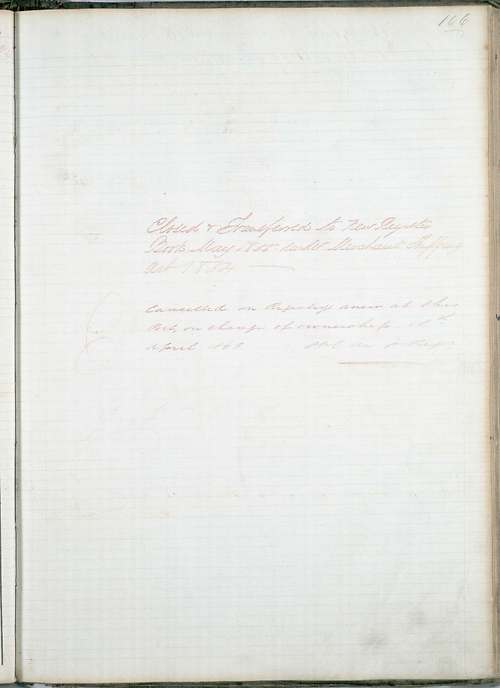 166
Closed & Transferred to New Register
Book May 1855 under Merchant Shipping
Act 1854
Cancelled on Registry anew at this
Port on change of ownership
April